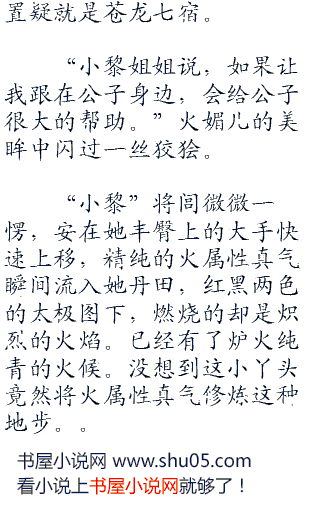 置疑就是苍龙七宿。
“小黎姐姐说，如果让
我跟在公子身边，会给公子
很大的帮助。”火媚儿的美
眸中闪过一丝狡狯。
“小黎”将闾微微一
愣，安在她丰臀上的大手快
速上移，精纯的火属性真气
瞬间流入她丹田，红黑两色
的太极图下，燃烧的却是炽
烈的火焰。已经有了炉火纯
青的火候。没想到这小丫头
竟然将火属性真气修炼这种
地步。。
书屋小说网 www.shu05.com
看小说上书屋小说网就够了！